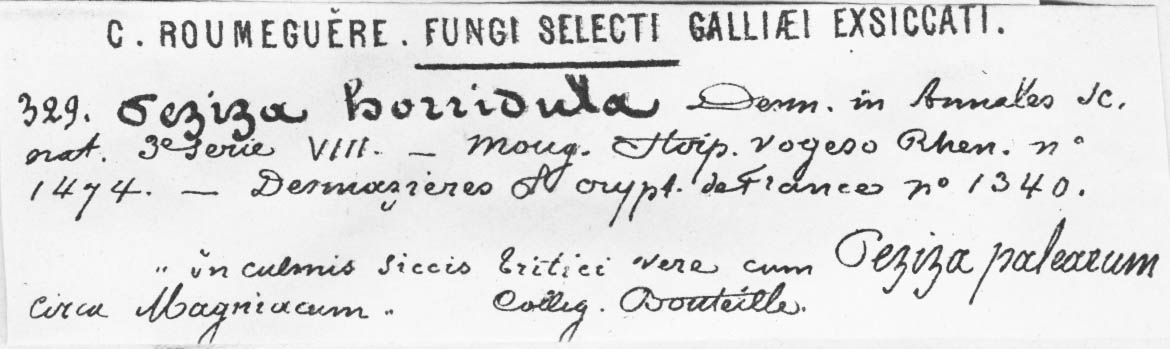 C. ROUMEGUĔRE. FUNGI SELECTI GALLIÆI EXSICCATI.
329. Peziza horridula Desm. in Annales Sc.
nat. 3e Serie VIII. — Moug. Stirp. vogeso Rhen. n°
1474. — Desmazières Pl crypt. de France n° 1340.
„ in culmis siccis tritici vere cum Peziza palearum
circa Magniacum „ Colleg. Bouteille.